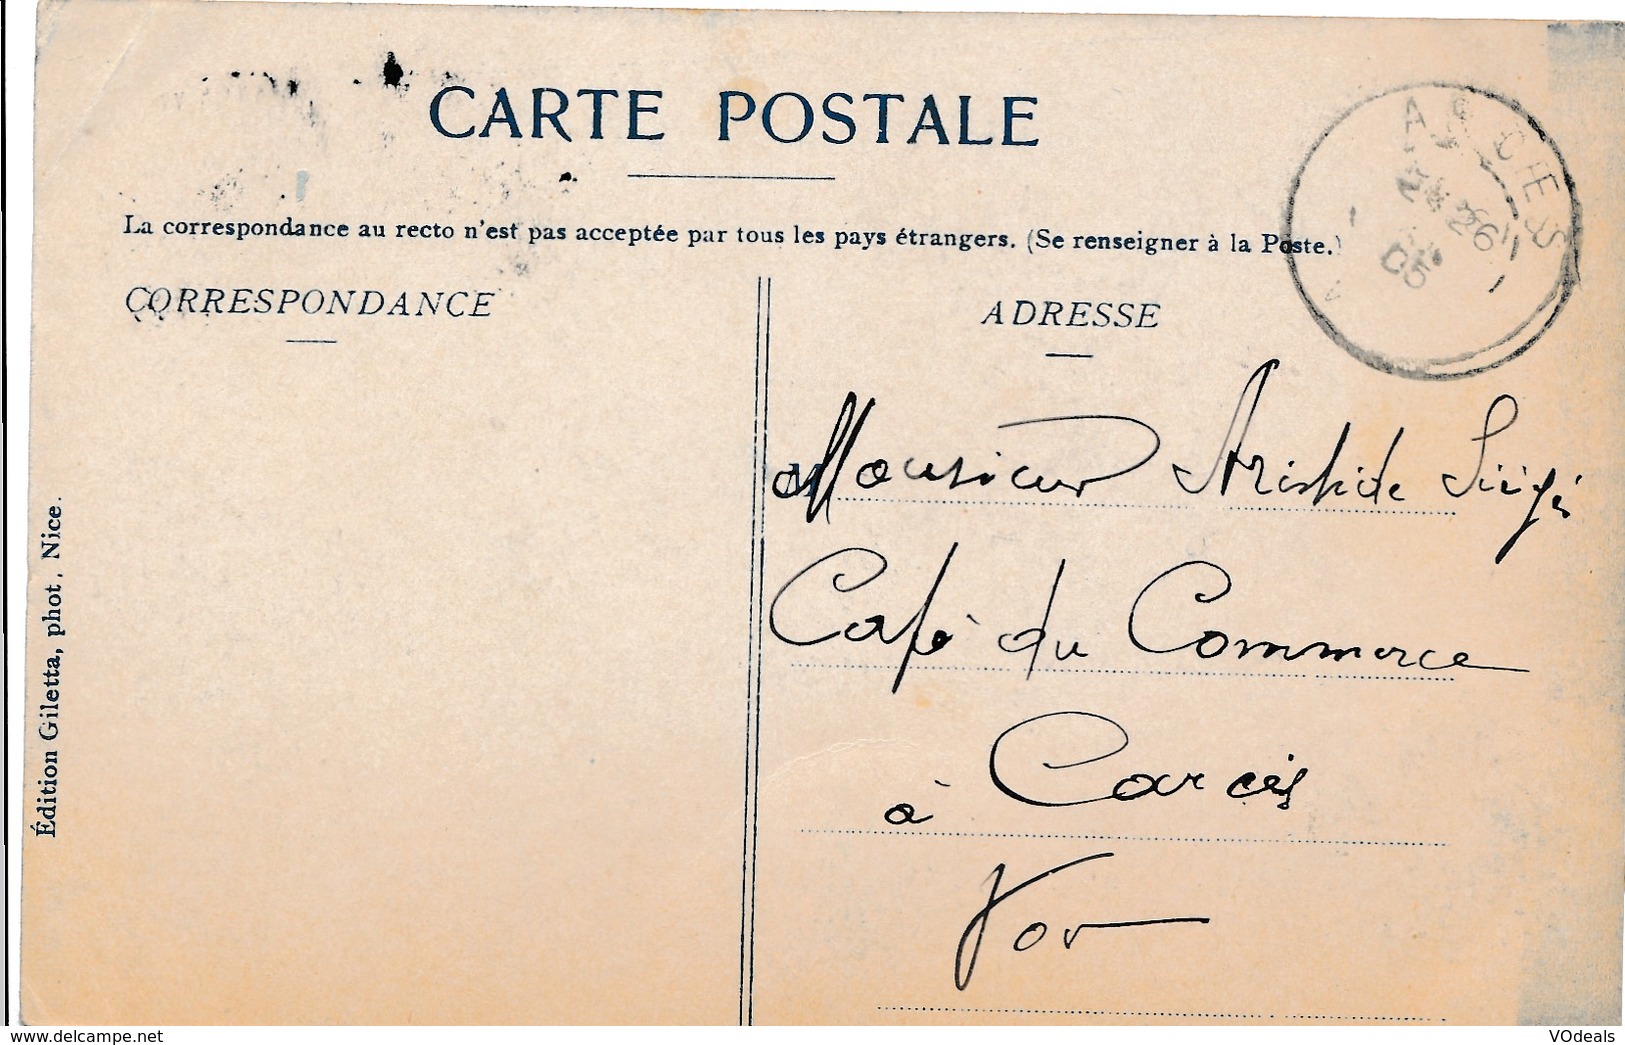 CARTE POSTALE
La correspondance au recto n'est pas acceptée par tous les pays étrangers. (Se renseigner à la Poste.)
CORRESPONDANCE
ADRESSE
Monsieur Aristide
Café du Commerce
à Carcès
Var
Édition Giletta, phot. Nice.
26
05
delcampe.net
VOdeals